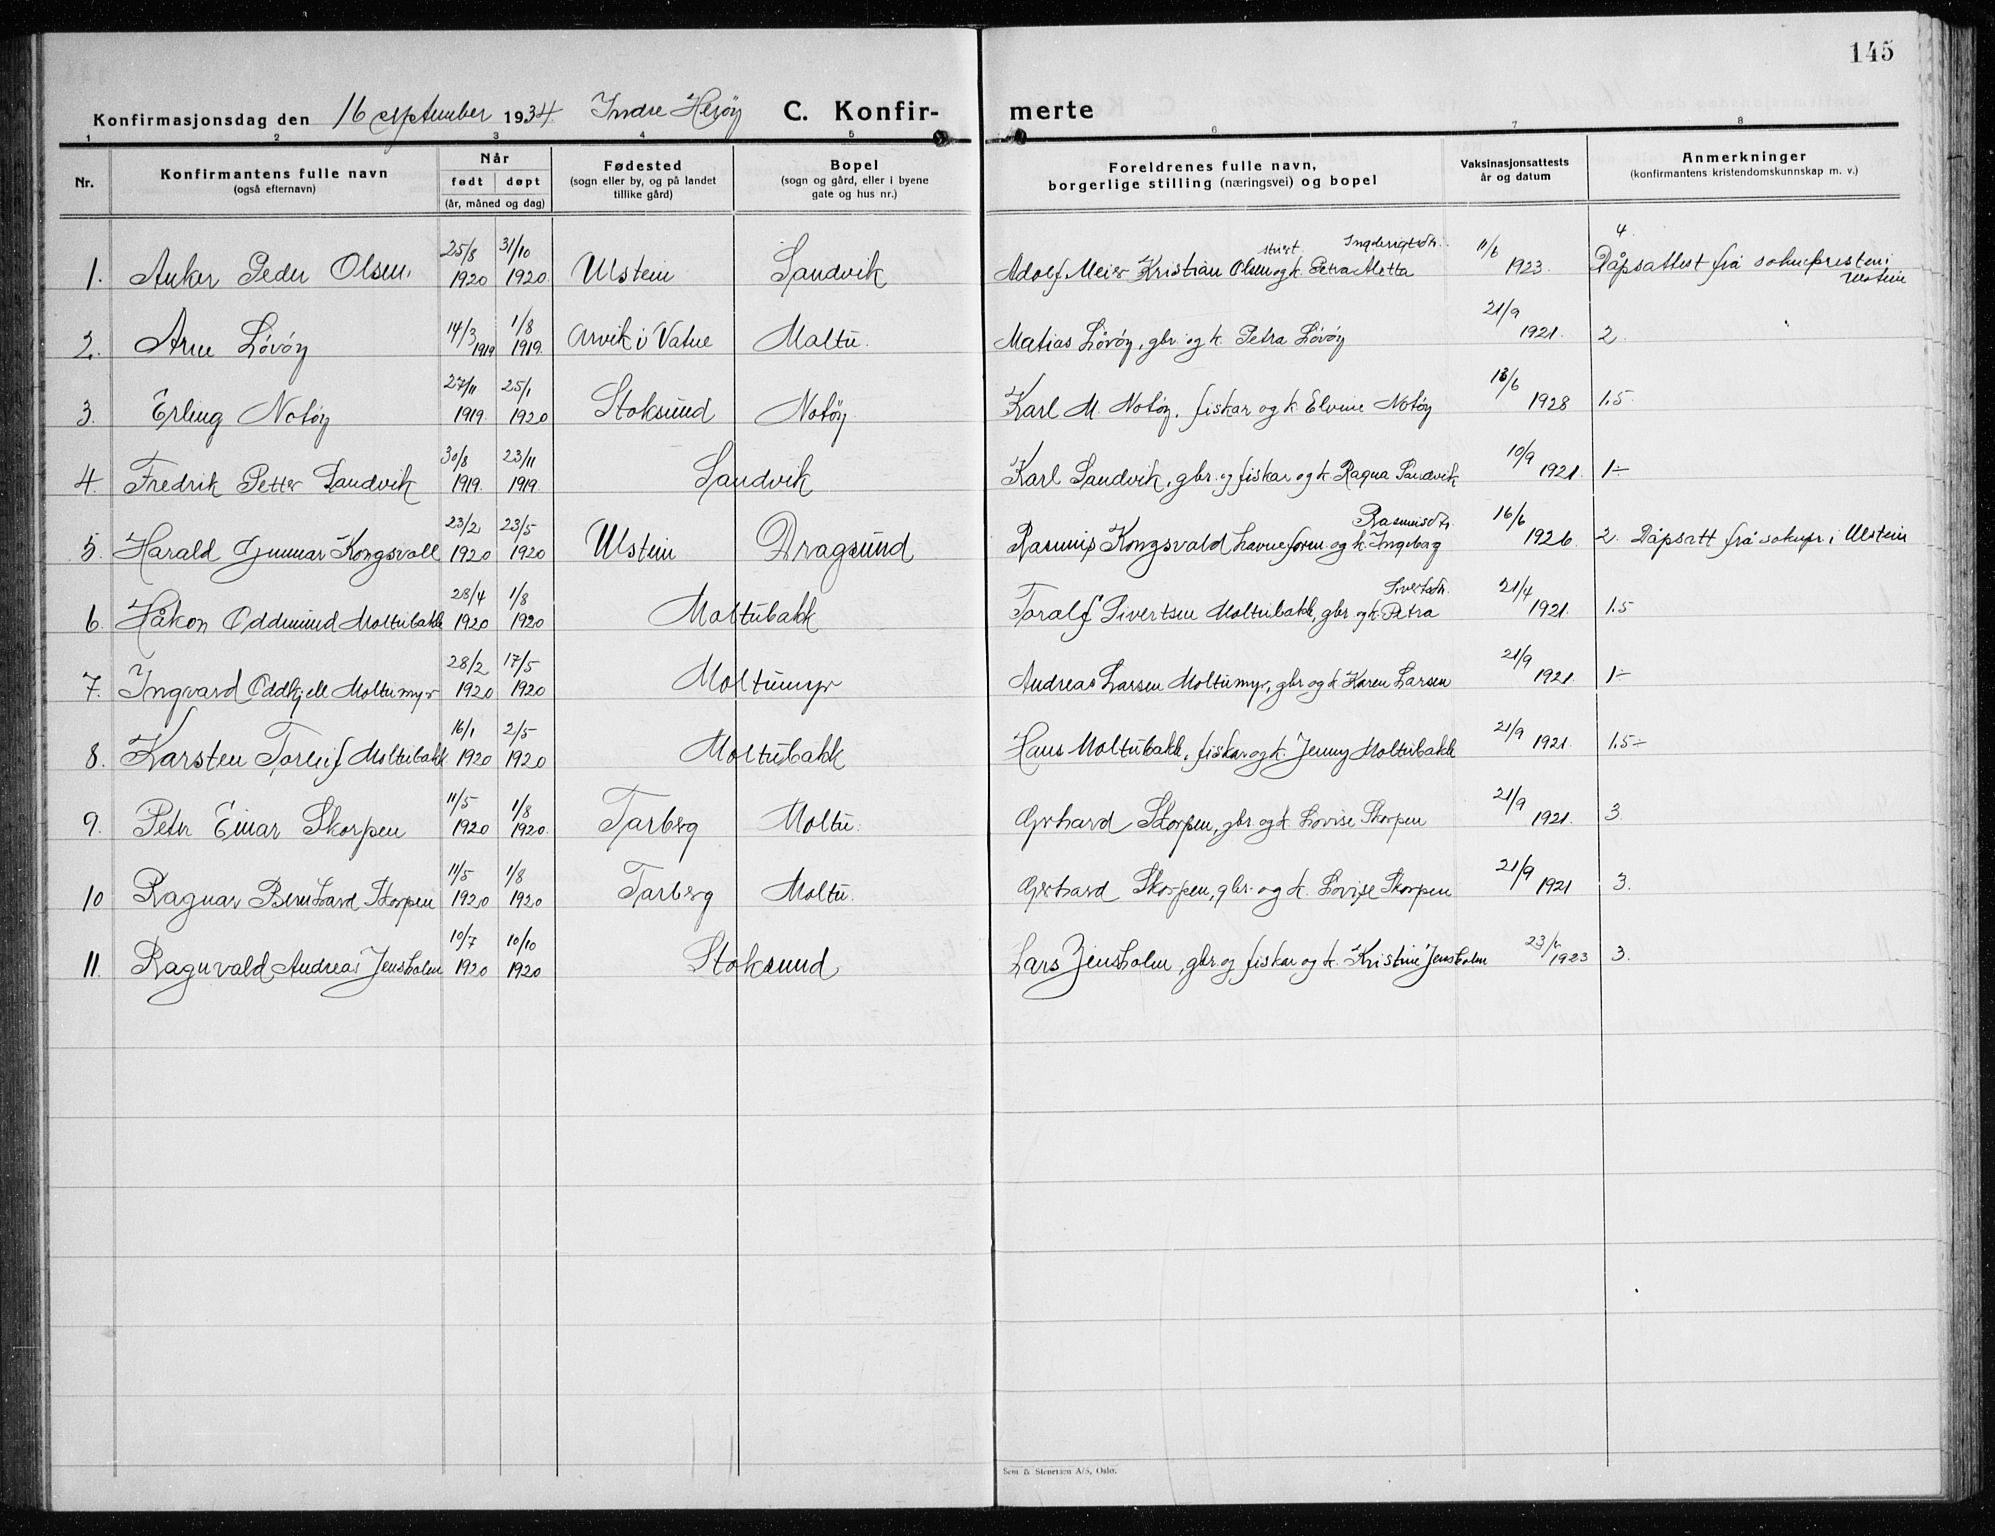 145
Konfirmasjonsdag den 16 september 1934. Indre Herøy C. Konfir- merte
1 2 3 4 5 6 7 8
Nr. Konfirmantens fulle navn (også efternavn) Når født døpt (år, måned og dag) Fødested (sogn eller by, og på landet tillike gård) Bopel (sogn og gård, eller i byene gate og hus nr.) Foreldrenes fulle navn, borgerlige stilling (næringsvei) og bopel Vaksinasjonsattests år og datum Anmerkninger (konfirmantens kristendomskunnskap m. v.)
1. Anker Peder Olsen. 25/8 1920 31/10 1920. Ulstein Sandvik Adolf Meier Kristian Olsen og k. Petra Metta Ingebrigtsdtr. 11/6 1923. 4. Dåpsattest frå soknepresten i Ulstein
2. Arne Løvøy 14/3 1919 1/8 1919. Arvik i Vatne Moltu. Matias Løvøy, gbr. og k. Petra Løvøy 21/9 1921. 2.
3. Erling Notøy 27/11 1919. 25/1 1920 Stoksund Notøy Karl M. Notøy, fiskar og k. Elvine Notøy 13/6 1928 1.5.
4. Fredrik Petter Sandvik 30/8 1919. 23/11 1919. Sandvik Karl Sandvik, gbr. og fiskar og k. Ragna Sandvik 10/9 1921. 1-
5. Harald Gunnar Kongsvoll 23/2 1920 23/5 1920 Ulstein Dragsund Rasmus Kongsvald havneform. og k. Ingebag Rasmusdtr. 16/6 1926. 2. Dåpsatt frå soknepr i Ulstein
6. Håkon Oddmund Moltubakk 28/4 1920 1/8 1920 Moltubakk Toralf Sivertsen Moltubakk, gbr og k. Petra Sivertsdtr. 21/4 1921. 1.5
7. Ingvard Oddkjell Moltumyr 28/2 1920 17/5 1920 Moltumyr Andreas Larsen Moltumyr, gbr og k Karen Larsen 21/9 1921. 1-
8. Karsten Torleif Moltubakk 16/1 1920 2/5 1920 Moltubakk Hans Moltubakk, fiskar og k. Jenny Moltubakk 21/9 1921. 1.5-
9. Peter Einar Skorpen 11/5 1920 1/8 1920. Tarberg Moltu. Gerhard Skorpen, gbr. og k. Lovise Skorpen 21/9 1921. 3.
10 Ragnar Bernhard Skorpen 11/5 1920 1/8 1920 Tarberg Moltu. Gerhard Skorpen, gbr. og k. Lovise Skorpen 21/9 1921 3.
11. Ragnvald Andreas Jensholm 10/7 1920 10/10 1920 Stoksund Lars Jensholm, gbr. og fiskar og k. Kristine Jensholm 23/6 1923 3.
Sem & Stenersen A/S, Oslo.